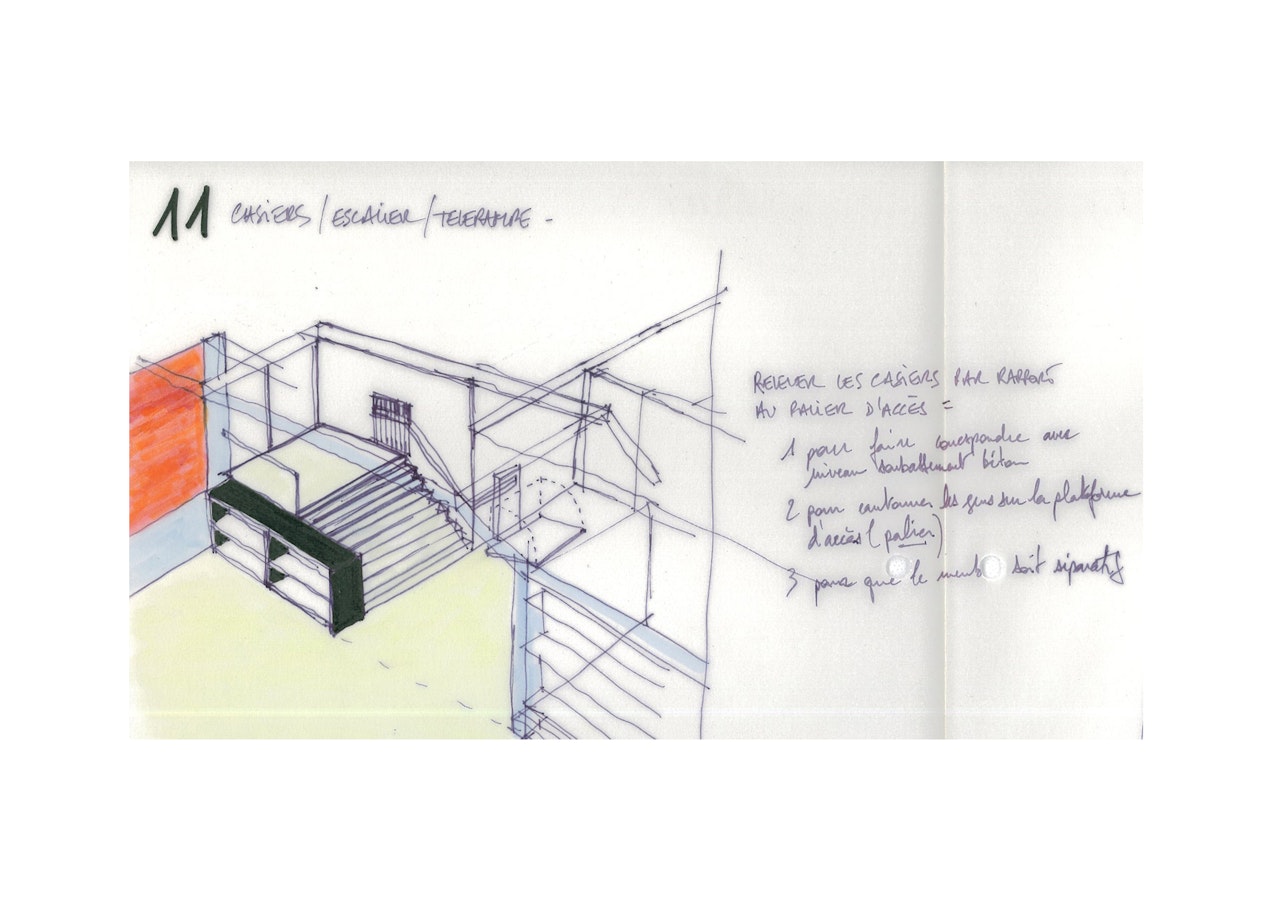 11 CASIERS / ESCALIER / TELERAMPE -
RELEVER LES CASIERS PAR RAPPORT
AU PALIER D'ACCÈS =
1 pour faire correspondre avec
niveau soubassement béton
2 pour cantonner les gens sur la plateforme
d'accès (palier)
3 pour que le soit séparatif